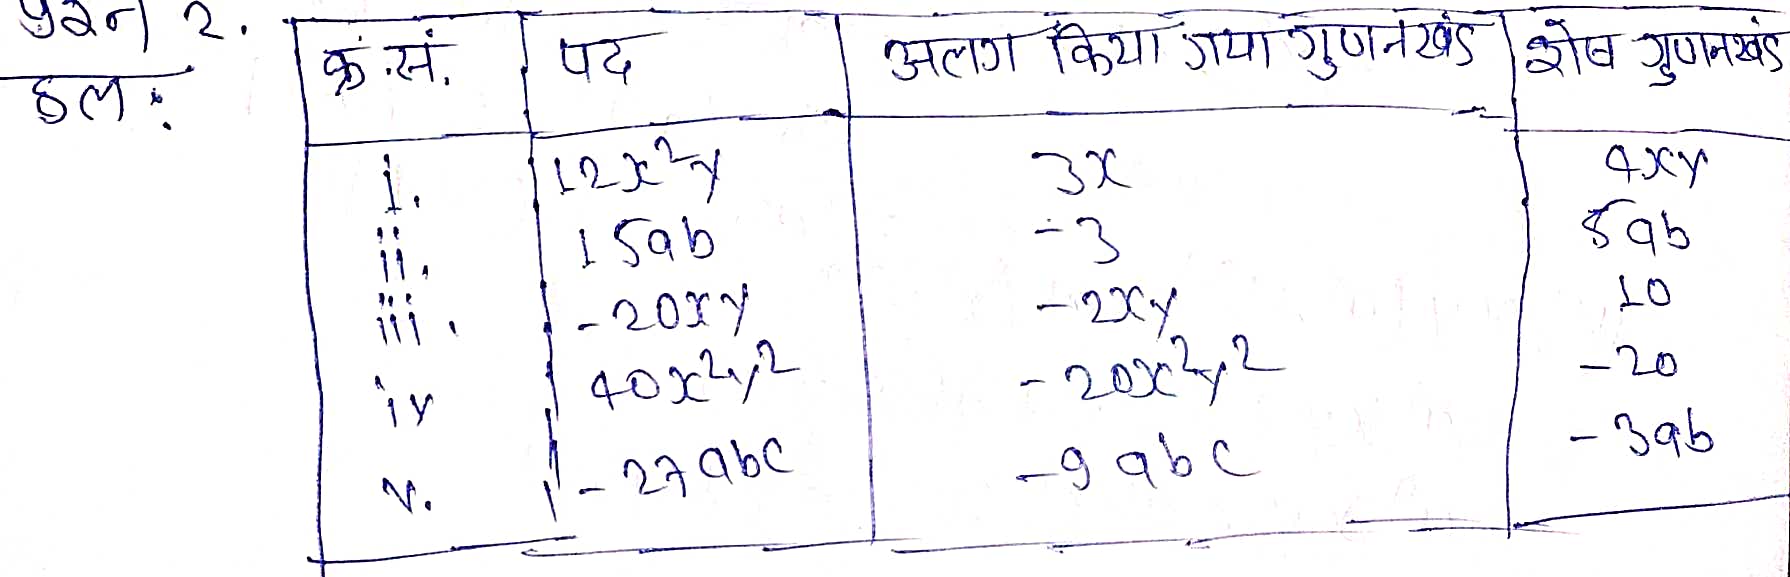 प्रश्न 2.
हल:
क्र.सं. पद अलग किया गया गुणनखंड शेष गुणनखंड
i. 12x²y 3x 4xy
ii. 15ab -3 5ab
iii. -20xy -2xy 10
iv 40x²y² -20x²y² -20
v. -27abc -9abc -3ab